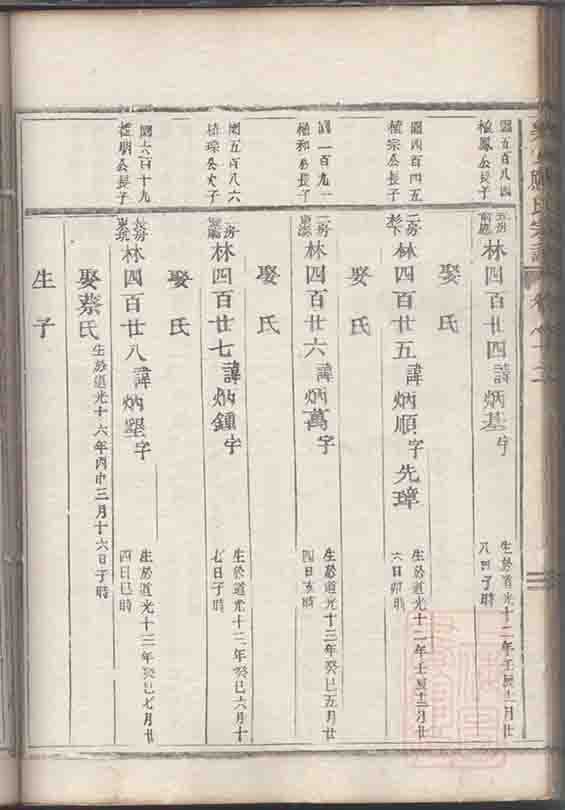 國五百八四
植鳳公長子
林四百廿四諱炳基字
生於道光十二年壬辰十二月廿
八日子時
娶氏
國四百四五
植宗公長子
二房
林四百廿五諱炳順字先璋
生於道光十二年壬辰十二月廿
六日卯時
娶氏
國一百九一
植和公長子
二房
林四百廿六諱炳萬字
生於道光十三年癸巳五月廿
四日亥時
娶氏
國五百八六
植琮公次子
房
林四百廿七諱炳鍾字
生於道光十三年癸巳六月十
七日子時
娶氏
國六百十九
植朋公長子
房
林四百廿八諱炳壂字
生於道光十三年癸巳七月廿
四日巳時
娶蔡氏
生於道光十六年丙申三月十六日子時
生子